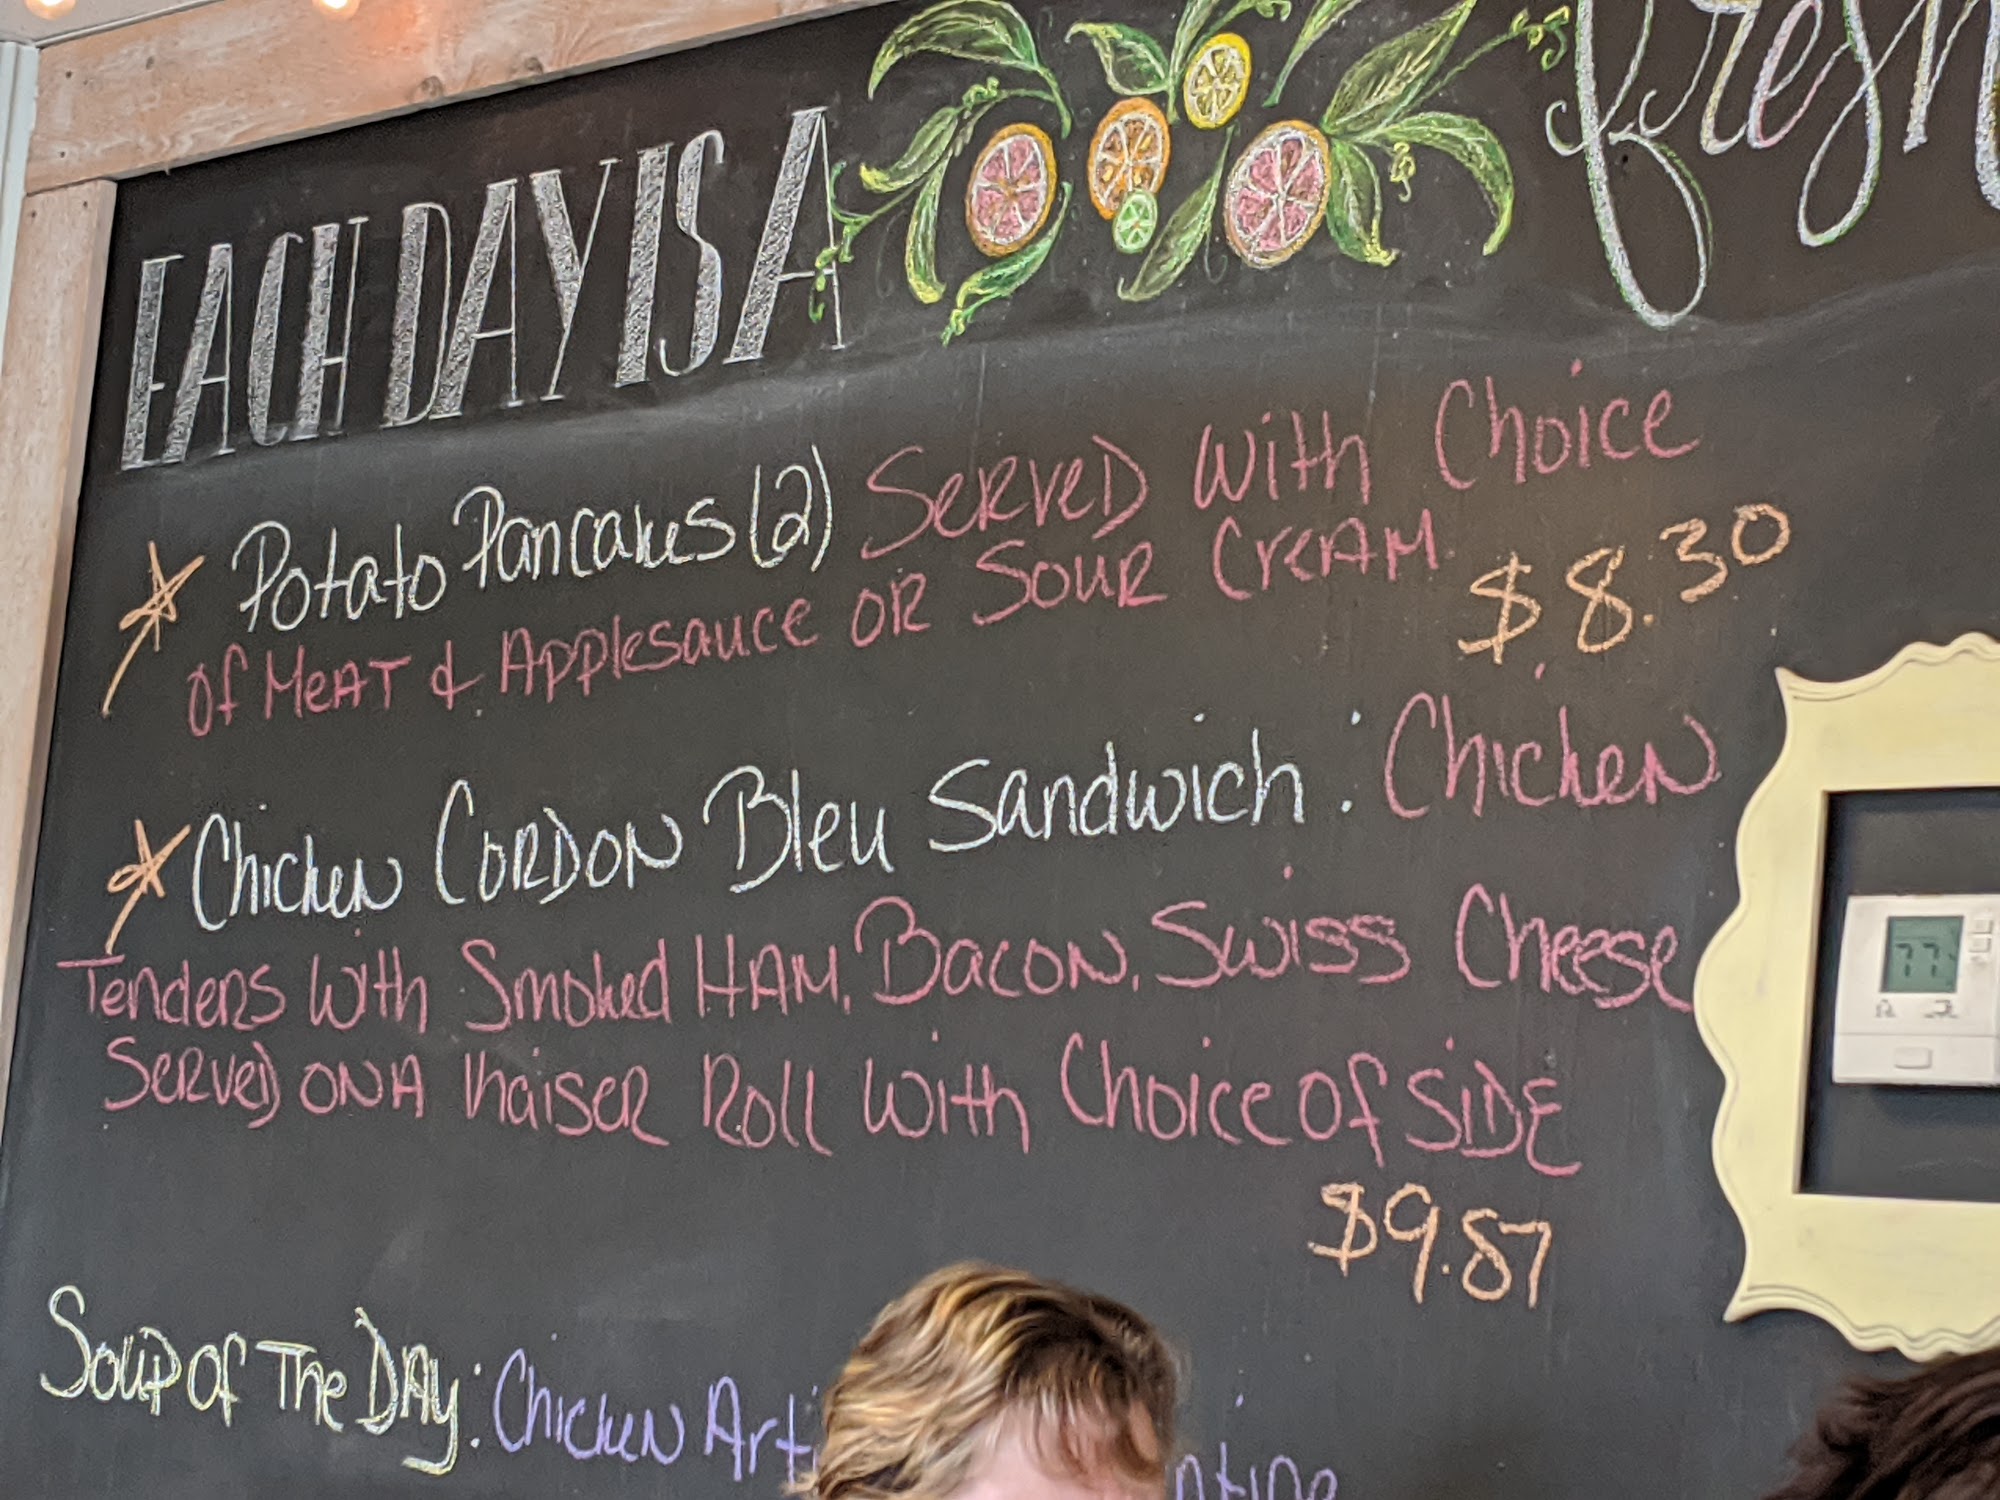 EACH DAY IS A fresh
Potato Pancakes (2) Served with Choice
of Meat & Applesauce or Sour Cream
$8.30
Chicken Cordon Bleu Sandwich: Chicken
Tenders with Smoked Ham, Bacon, Swiss Cheese
Served on a Kaiser Roll with Choice of Side
$9.87
77
Soup of The Day: Chicken